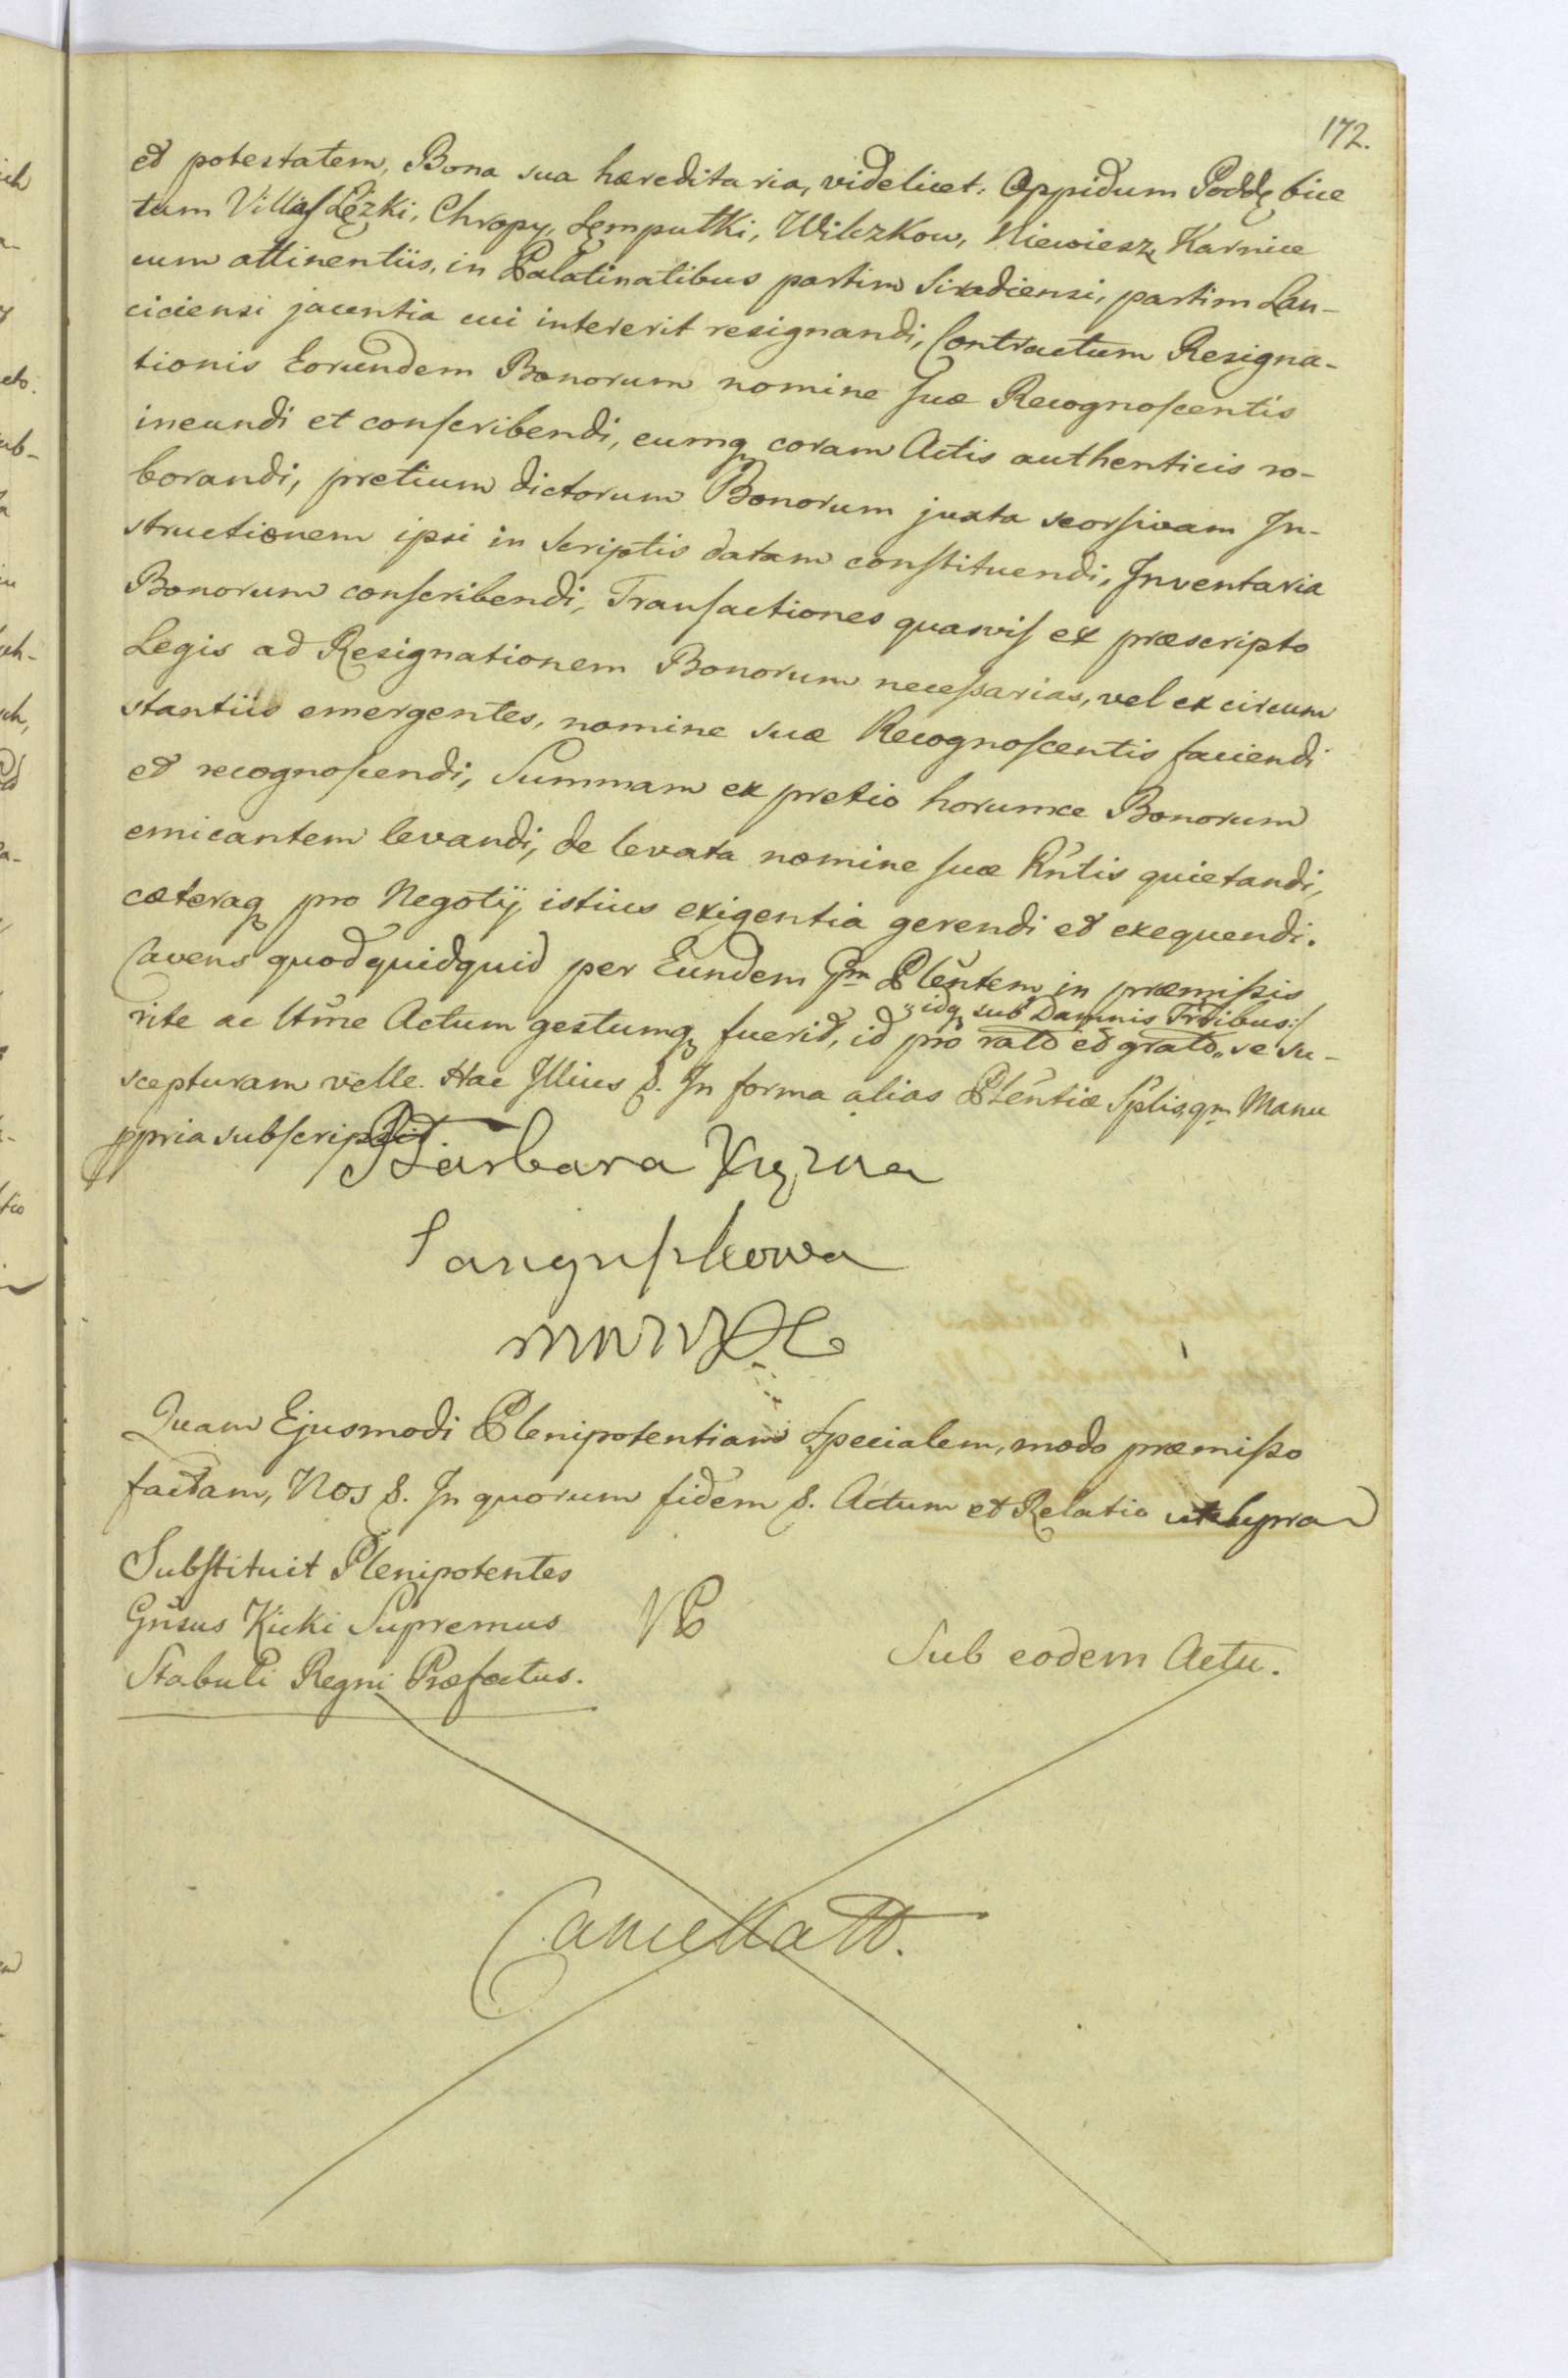 172.
et potestatem, Bona sua hæreditaria, videlicet: Oppidum Poddębice
tum Villas Lęzki, Chropy, Lęmputki, Wilczkow, Niewiesz, Karnice
cum attinentiis, in Palatinatibus partim Siradiensi, partim Lan-
ciciensi jacentia cui intererit resignandi, Contractum Resigna-
tionis Eorundem Bonorum nomine suæ Recognoscentis
ineundi et conscribendi, eumq coram Actis authenticis ro-
borandi, pretium dictorum Bonorum juxta seorsivam In-
structionem ipsi in Scriptis datam constituendi, Inventaria
Bonorum conscribendi, Transactiones quasvis ex præscripto
Legis ad Resignationem Bonorum necessarias, vel ex circum
stantiis emergentes, nomine suæ Recognoscentis faciendi
et recognoscendi, Summam ex pretio horumce Bonorum
emicantem levandi, de levata nomine suæ Rntis quietandi,
cæteraq pro Negotij istius exigentia gerendi et exequendi.
Cavens quod quidquid per Eundem Gm Plentem in præmissis
idq sub Damnis Trribus:/
rite ac ltme Actum gestumq fuerit, id pro rato et grato, se su-
scepturam velle. Hac Illius &. In forma alias Plentiæ Splis, qm Manu
ppria subscripsit.
Barbara Xięzna
Sanguszkowa
MMWXL
Quam Ejusmodi Plenipotentiam Specialem, modo præmisso
factam, Nos &. In quorum fidem &. Actum et Relatio ut supra
Substituit Plenipotentes
Gnsus Kicki Supremus
Stabuli Regni Præfectus.
VP
Sub eodem Actu.
Cancellatt.